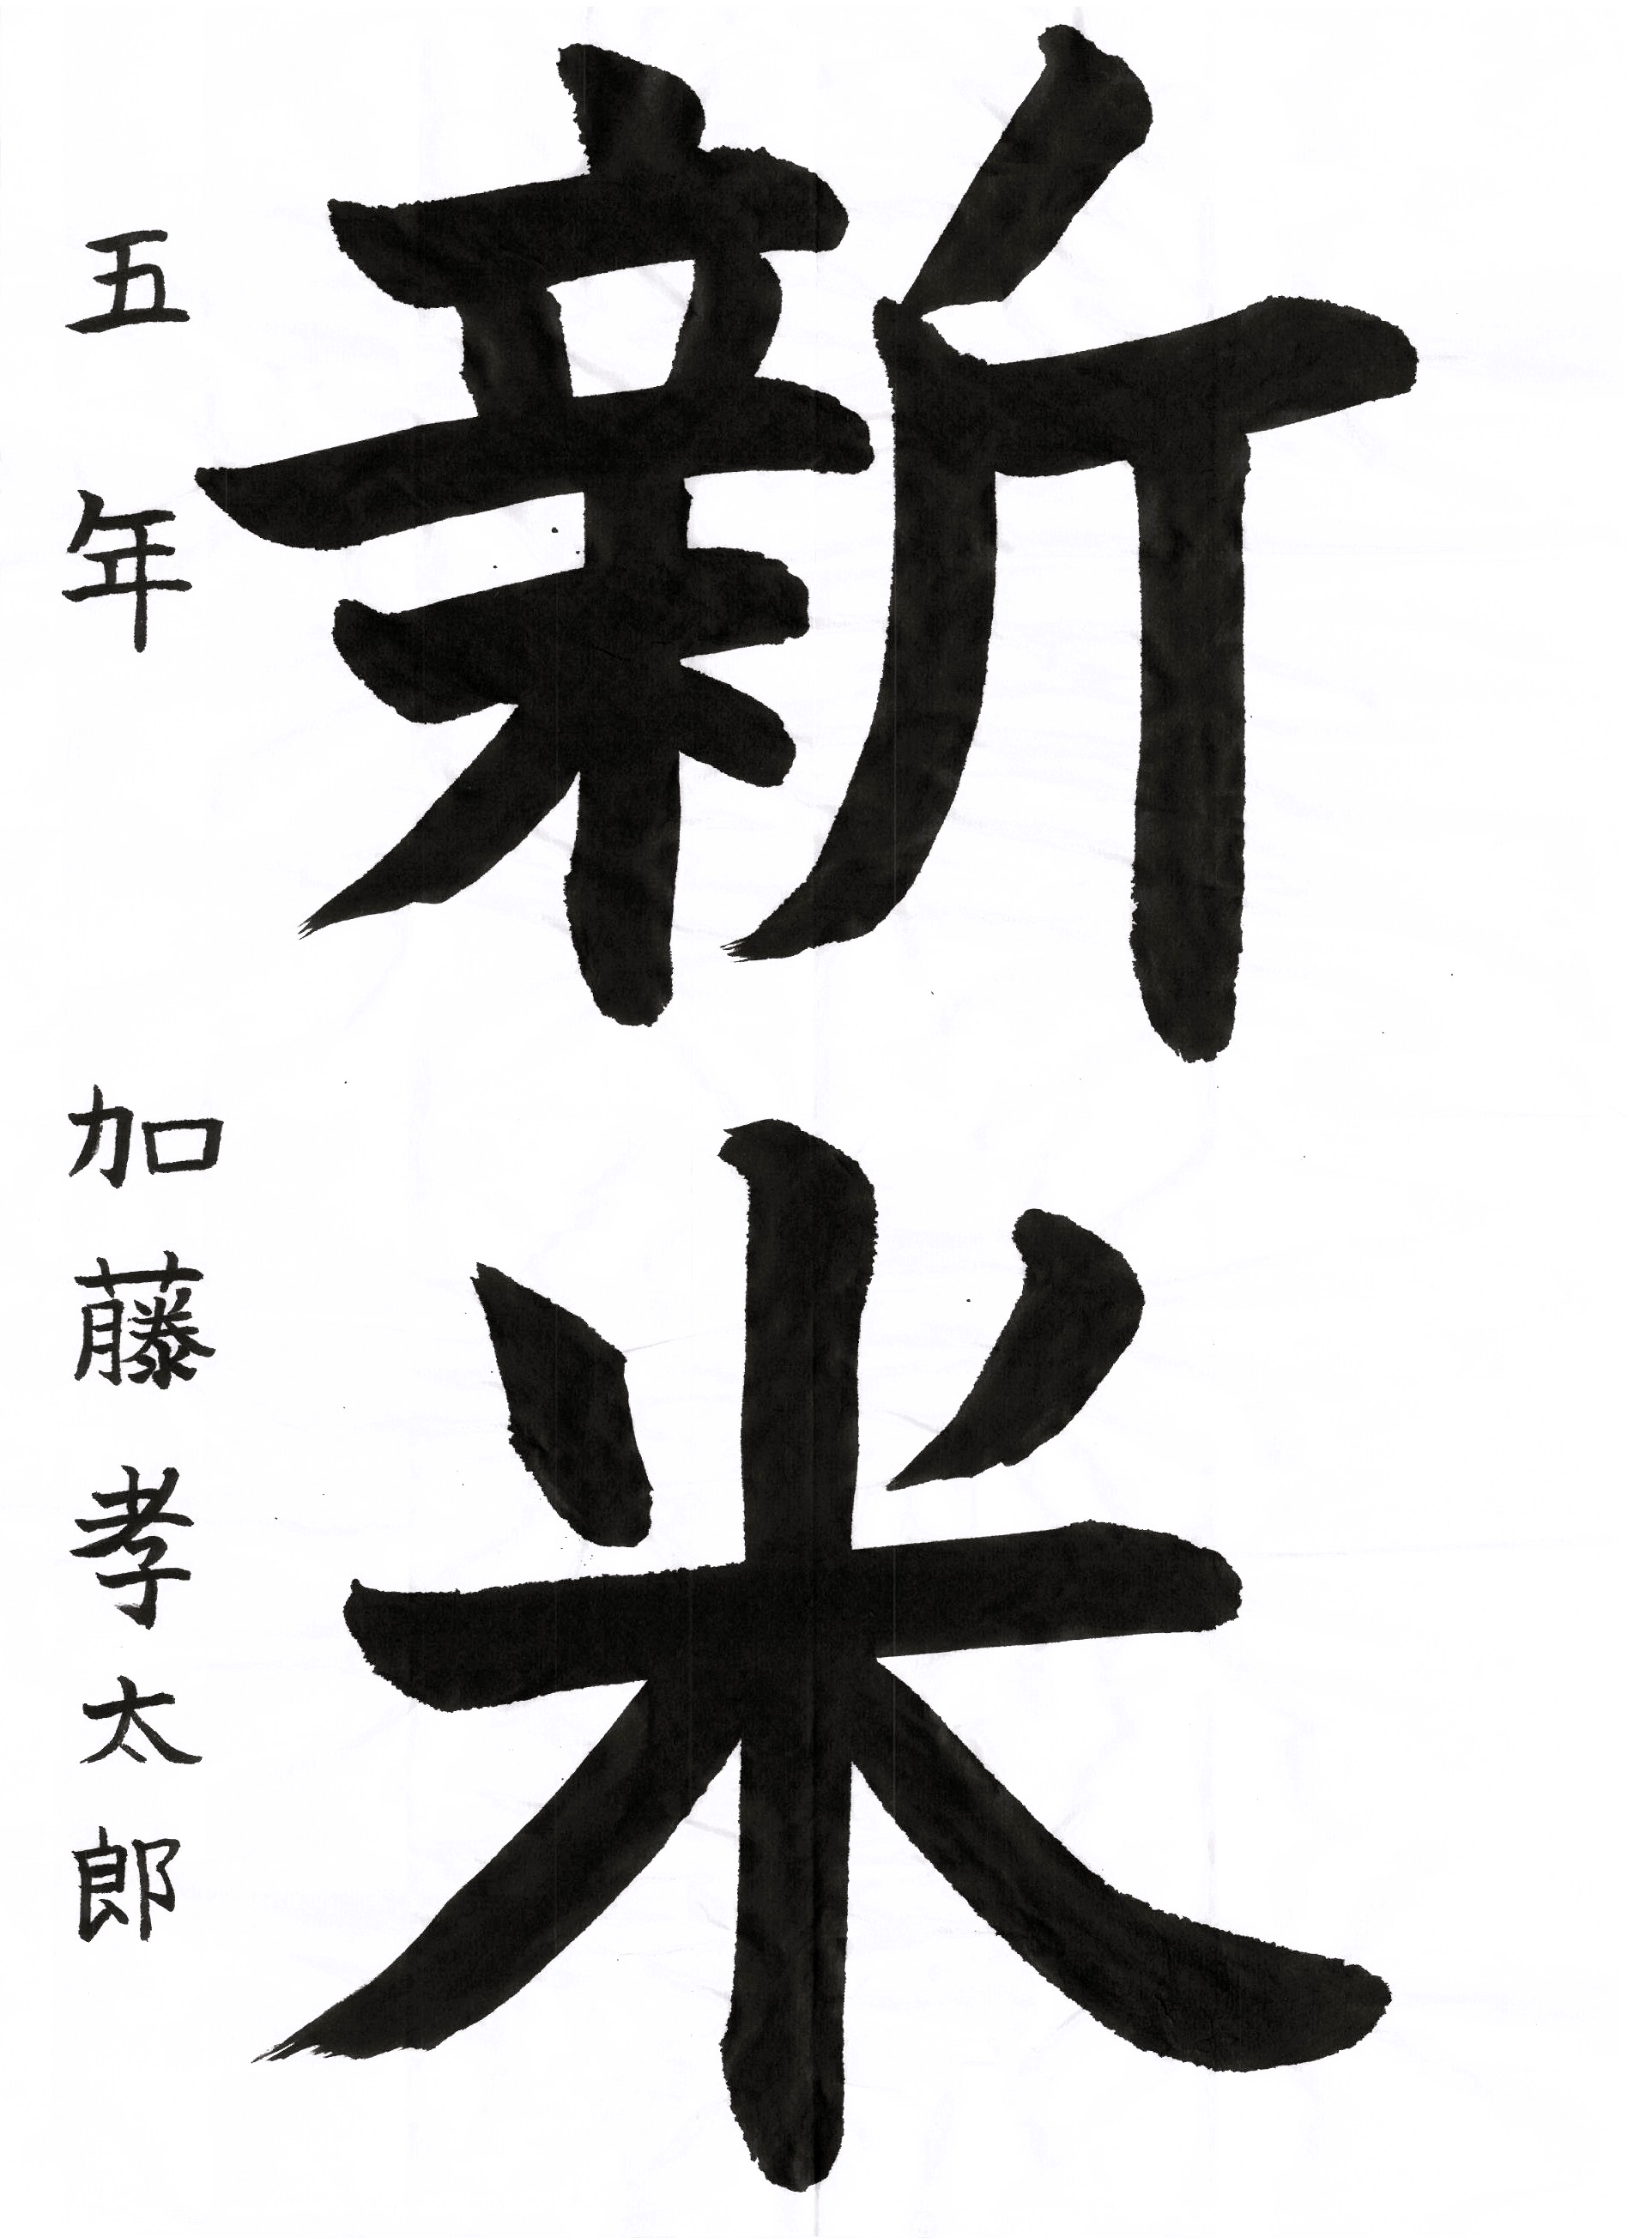 新米
五年 加藤孝太郎